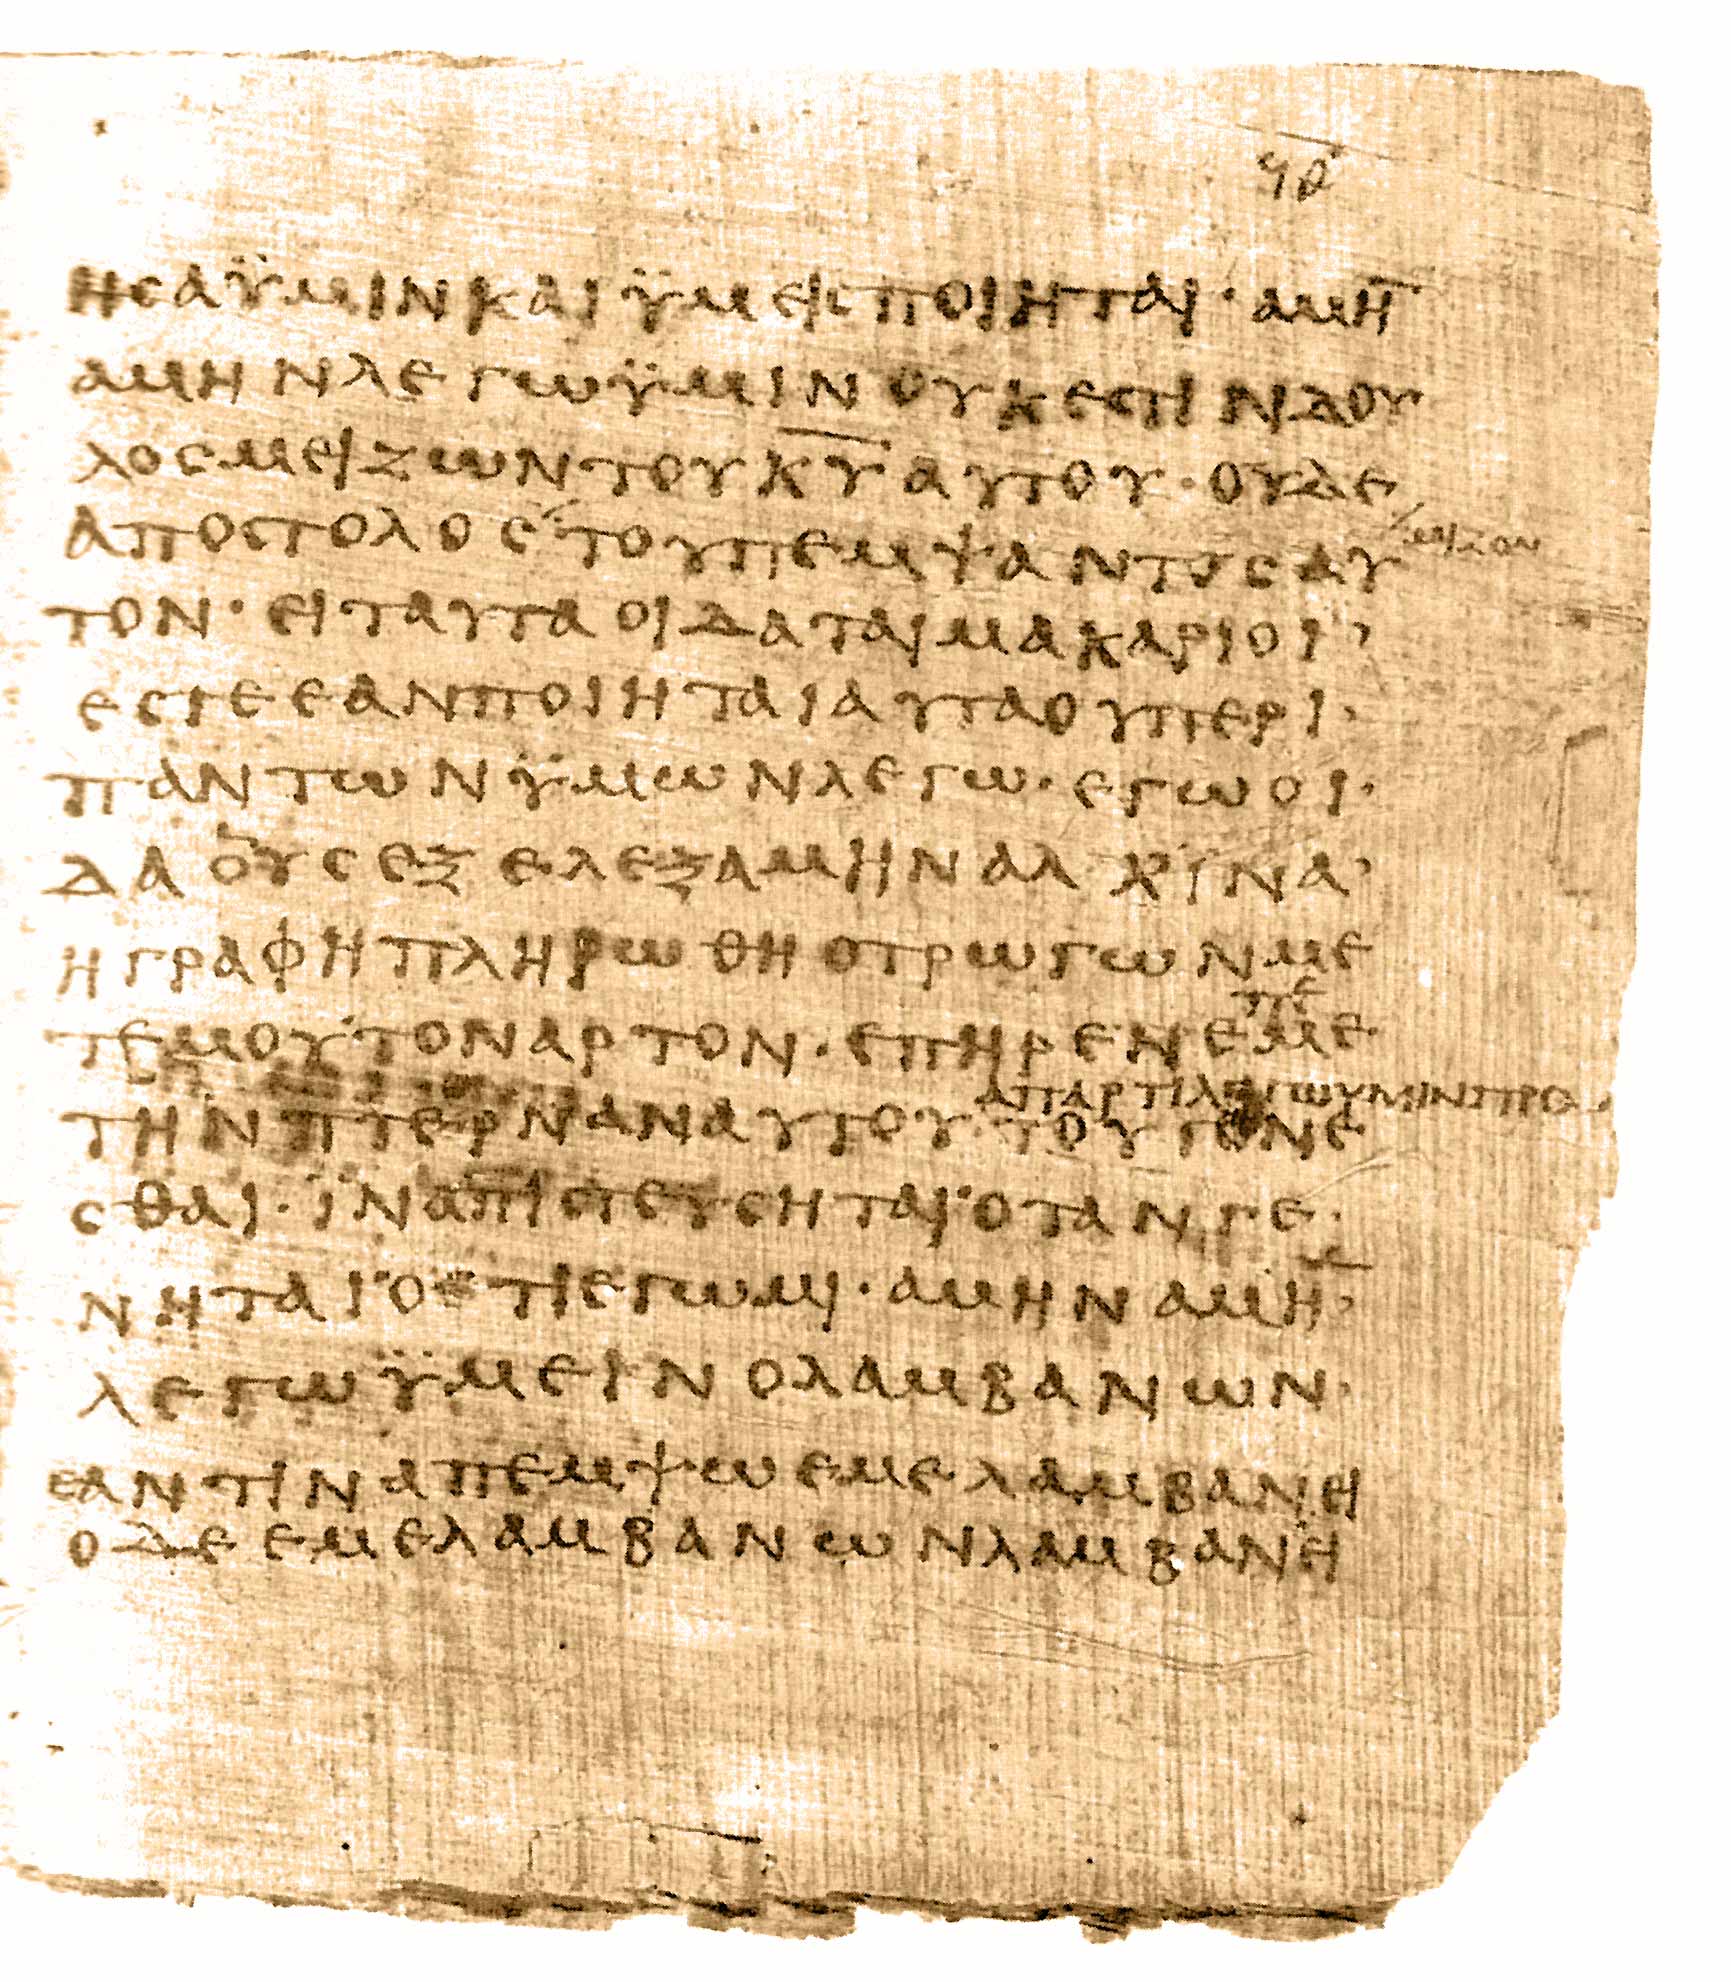 ϥθ
ηϲαϋμινκαιϋμειϲποιηται·αμη̅
αμηνλεγωϋμινουκεϲτινδου
λοϲμειζωντουκ̅υ̅αυτου·ουδε
αποϲτολοϲ⸍τουπεμψαντοϲαυ ⸍μιζον
τον·ειταυταοιδαταιμακαριοι·
εϲτεεανποιηταιαυταουπερι·
παντωνϋμωνλεγω·εγωοι·
δαουϲεξελεξαμηναλ᾽χ᾽ϊνα·
ηγραφηπληρωθηοτρωγωνμε
πε
τεμουτοναρτον·επηρενεμε
απαρτιλεγωυμινπρο
τηνπτερναναυτου·τουγενε
ϲθαι·ϊναπιϲτευϲηται·οτανγε·
νηται·οτιεγωμι·αμηναμη̅·
λεγωϋμεινολαμβανων·
εαντιναπεμψωεμελαμβανει
οδεεμελαμβανωνλαμβανει